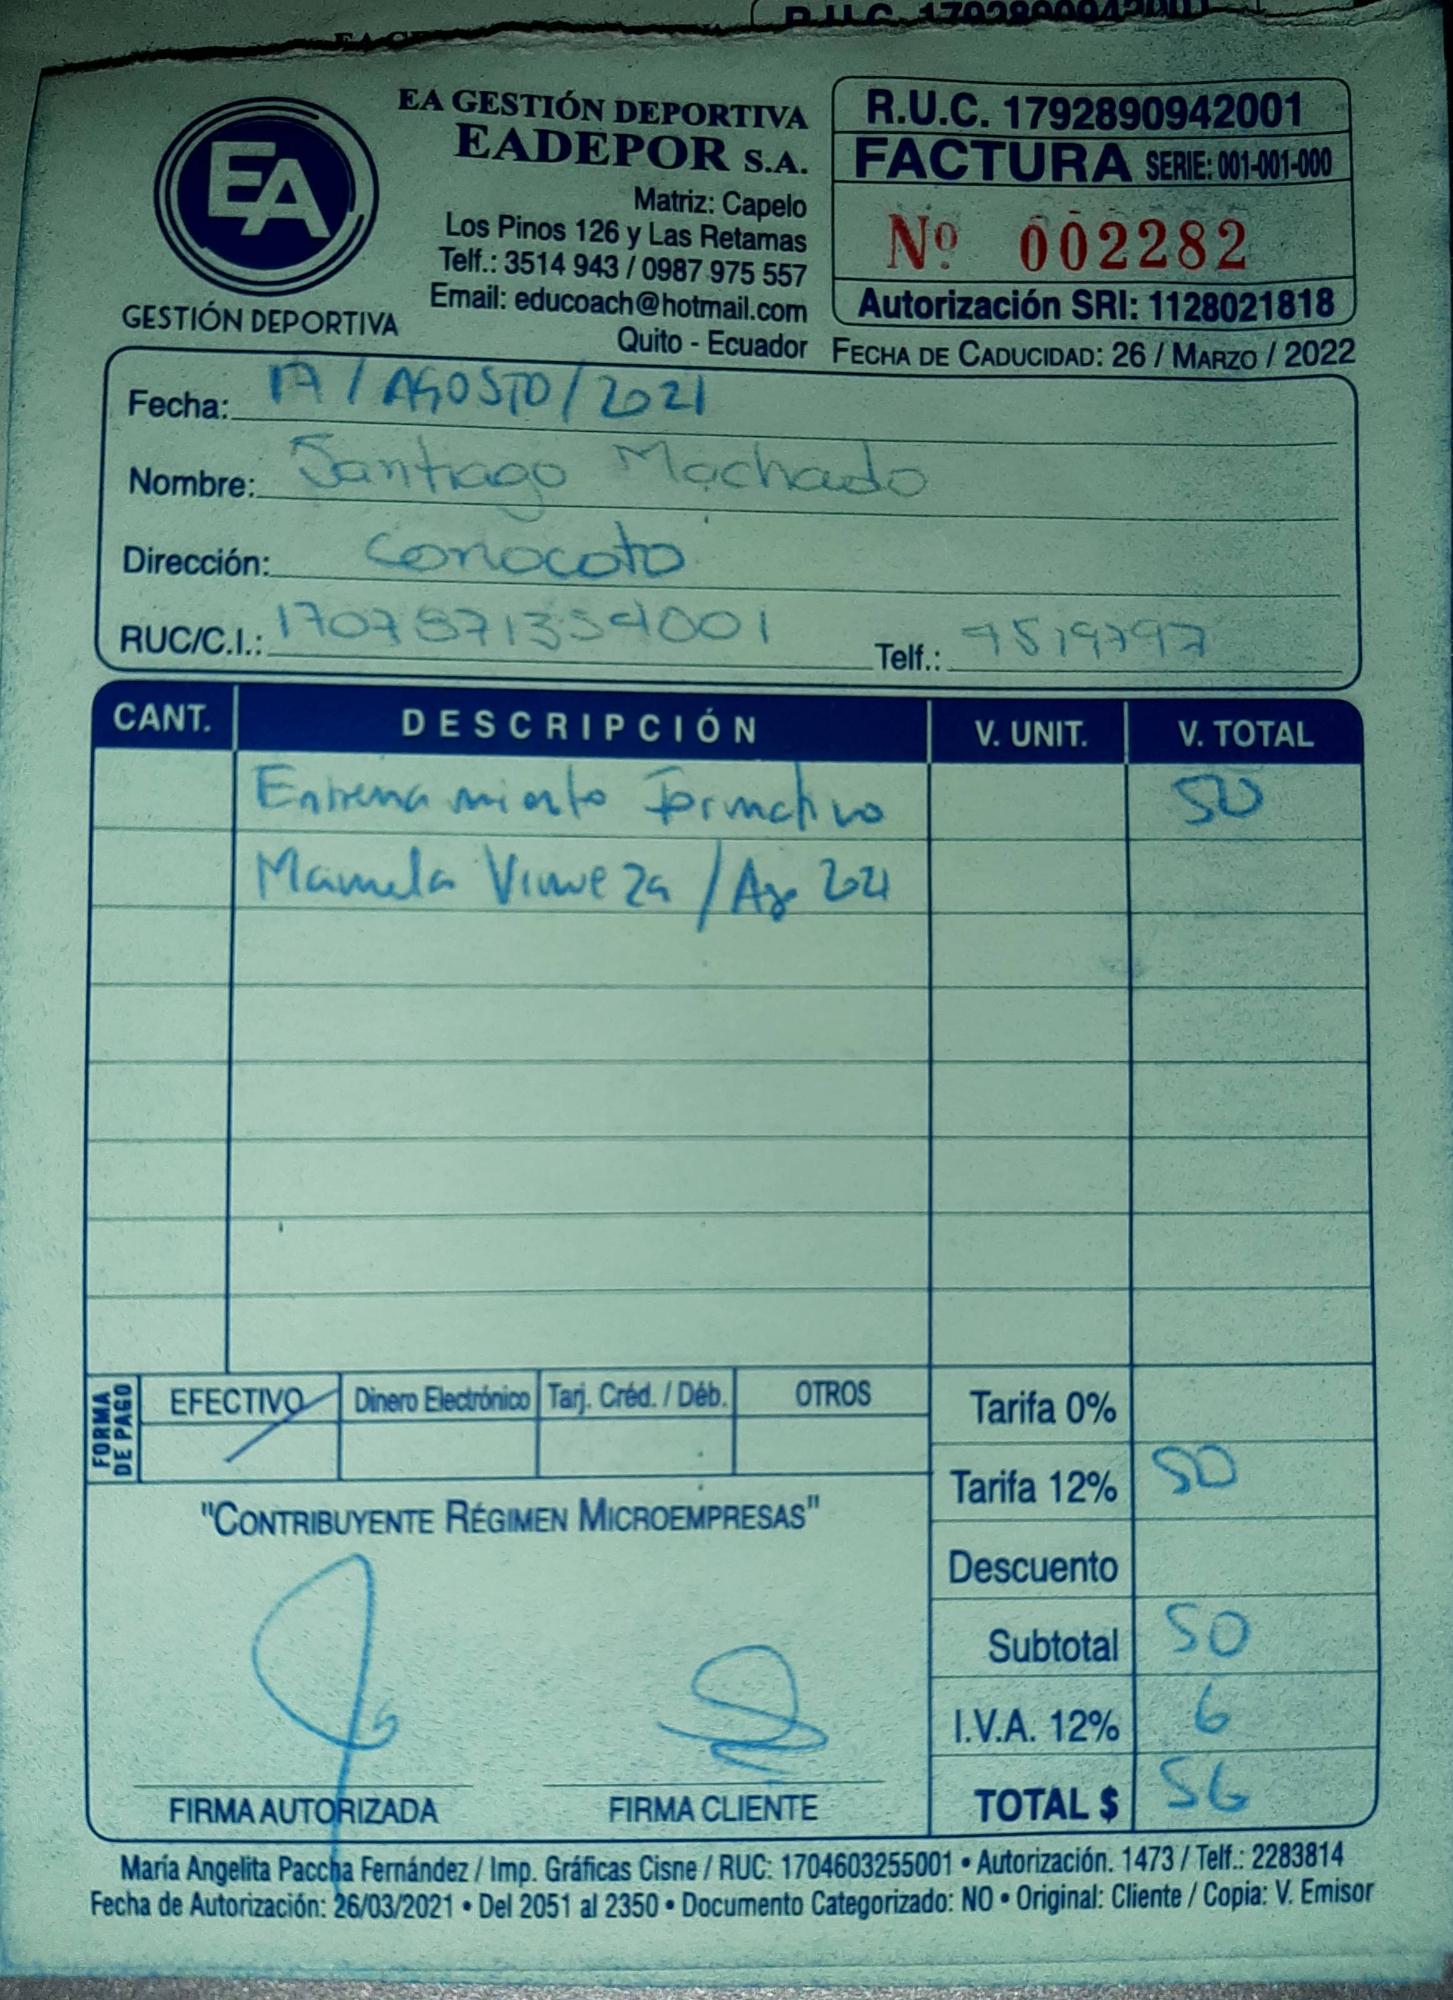 EA GESTIÓN DEPORTIVA
EADEPOR S.A.
Matriz: Capelo
Los Pinos 126 y Las Retamas
Telf.: 3514 943 / 0987 975 557
Email: educoach@hotmail.com
Quito - Ecuador
EA
GESTIÓN DEPORTIVA
R.U.C. 1792890942001
FACTURA SERIE: 001-001-000
Nº 002282
Autorización SRI: 1128021818
FECHA DE CADUCIDAD: 26 / MARZO / 2022
Fecha: 17 / AGOSTO / 2021
Nombre: Santiago Machado
Dirección: Conocoto
RUC/C.I.: Telf.:
CANT. DESCRIPCIÓN V. UNIT. V. TOTAL
Entrenamiento Formativo 50
/ Ago 2021
FORMA DE PAGO
EFECTIVO Dinero Electrónico Tarj. Créd. / Déb. OTROS
Tarifa 0%
Tarifa 12% 50
"CONTRIBUYENTE RÉGIMEN MICROEMPRESAS"
Descuento
Subtotal 50
I.V.A. 12% 6
TOTAL $ 56
FIRMA AUTORIZADA FIRMA CLIENTE
María Angelita Paccha Fernández / Imp. Gráficas Cisne / RUC: 1704603255001 • Autorización. 1473 / Telf.: 2283814
Fecha de Autorización: 26/03/2021 • Del 2051 al 2350 • Documento Categorizado: NO • Original: Cliente / Copia: V. Emisor